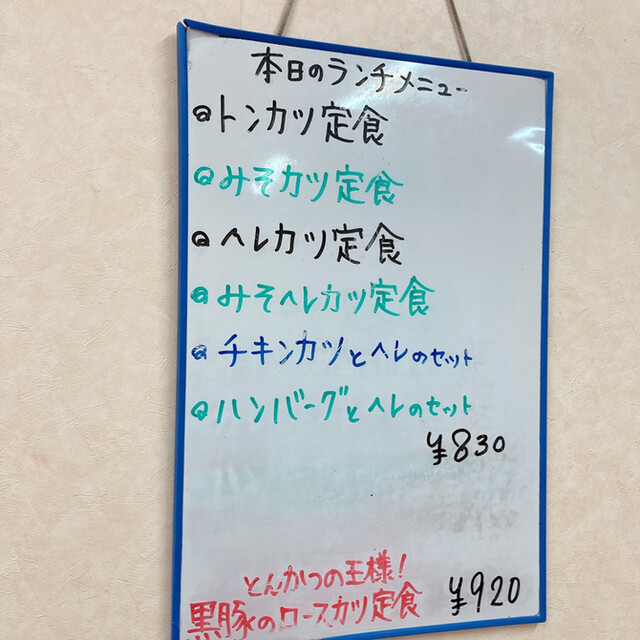 本日のランチメニュー
トンカツ定食
みそカツ定食
ヘレカツ定食
みそヘレカツ定食
チキンカツとヘレのセット
ハンバーグとヘレのセット
¥830
とんかつの王様!
黒豚のロースカツ定食 ¥920